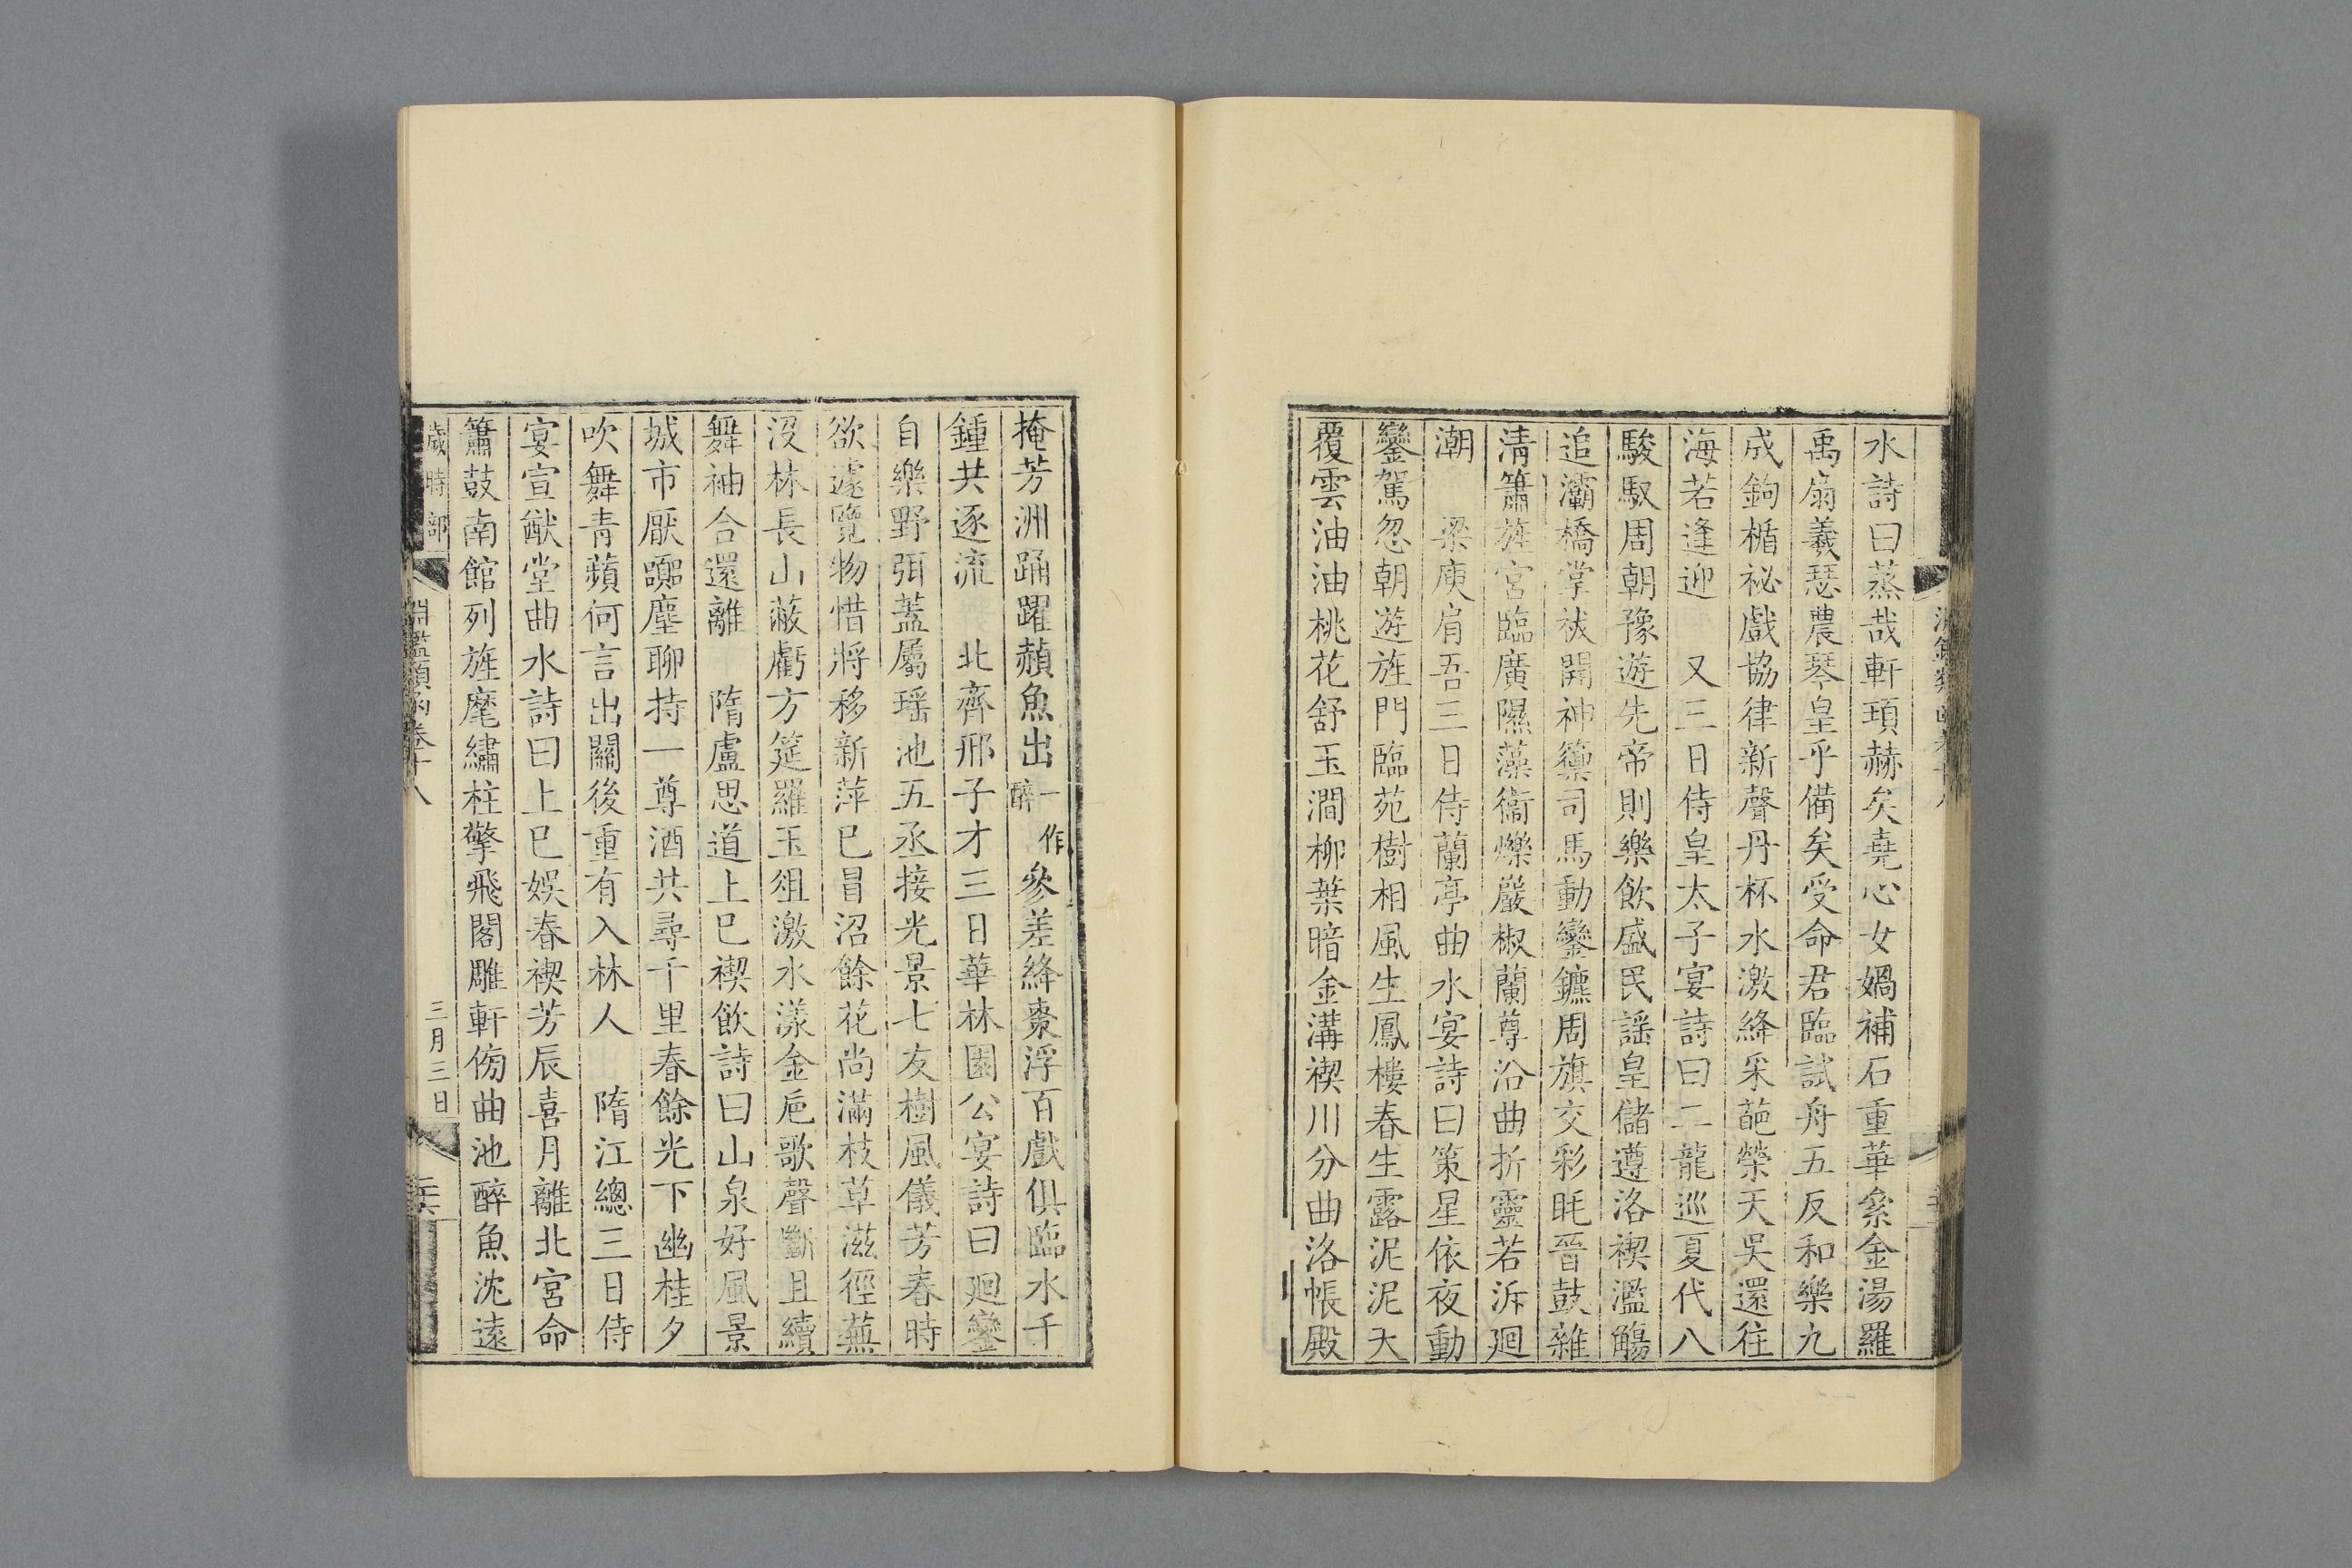 水詩曰蒸哉軒頊赫矣堯心女媧補石重華絫金湯羅
禹扇羲瑟農琴皇乎備矣受命君臨試舟五反和樂九
成鉤楯祕戲協律新聲丹杯水激絳采葩榮天吳還往
海若逢迎 又三日侍皇太子宴詩曰二龍巡夏代八
駿馭周朝豫遊先帝則樂飲盛民謡皇儲遵洛禊濫觴
追灞橋掌祓開神籞司馬動鑾鑣周旗交彩眊晉鼓雜
清簫旌宮臨廣隰藻衞爍巖椒蘭尊沿曲折靈若泝廻
潮 梁庾肩吾三日侍蘭亭曲水宴詩曰策星依夜動
鑾駕忽朝遊旌門臨苑樹相風生鳳樓春生露泥泥天
覆雲油油桃花舒玉澗柳葉暗金溝禊川分曲洛帳殿
掩芳洲踊躍頳魚出一作醉參差絳棗浮百戲俱臨水千
鍾共逐流 北齊邢子才三日華林園公宴詩曰廻鑾
自樂野弭蓋屬瑶池五丞接光景七友樹風儀芳春時
欲遽覽物惜將移新萍已冒沼餘花尚滿枝草滋徑蕪
沒林長山蔽虧方筵羅玉俎激水漾金巵歌聲斷且續
舞袖合還離 隋盧思道上巳禊飲詩曰山泉好風景
城市厭囂塵聊持一尊酒共尋千里春餘光下幽桂夕
吹舞青蘋何言出關後重有入林人 隋江總三日侍
宴宣猷堂曲水詩曰上巳娛春禊芳辰喜月離北宮命
簫鼓南館列旌麾繡柱擎飛閣雕軒傍曲池醉魚沈遠
歲時部 淵鑑類函卷十八 三月三日